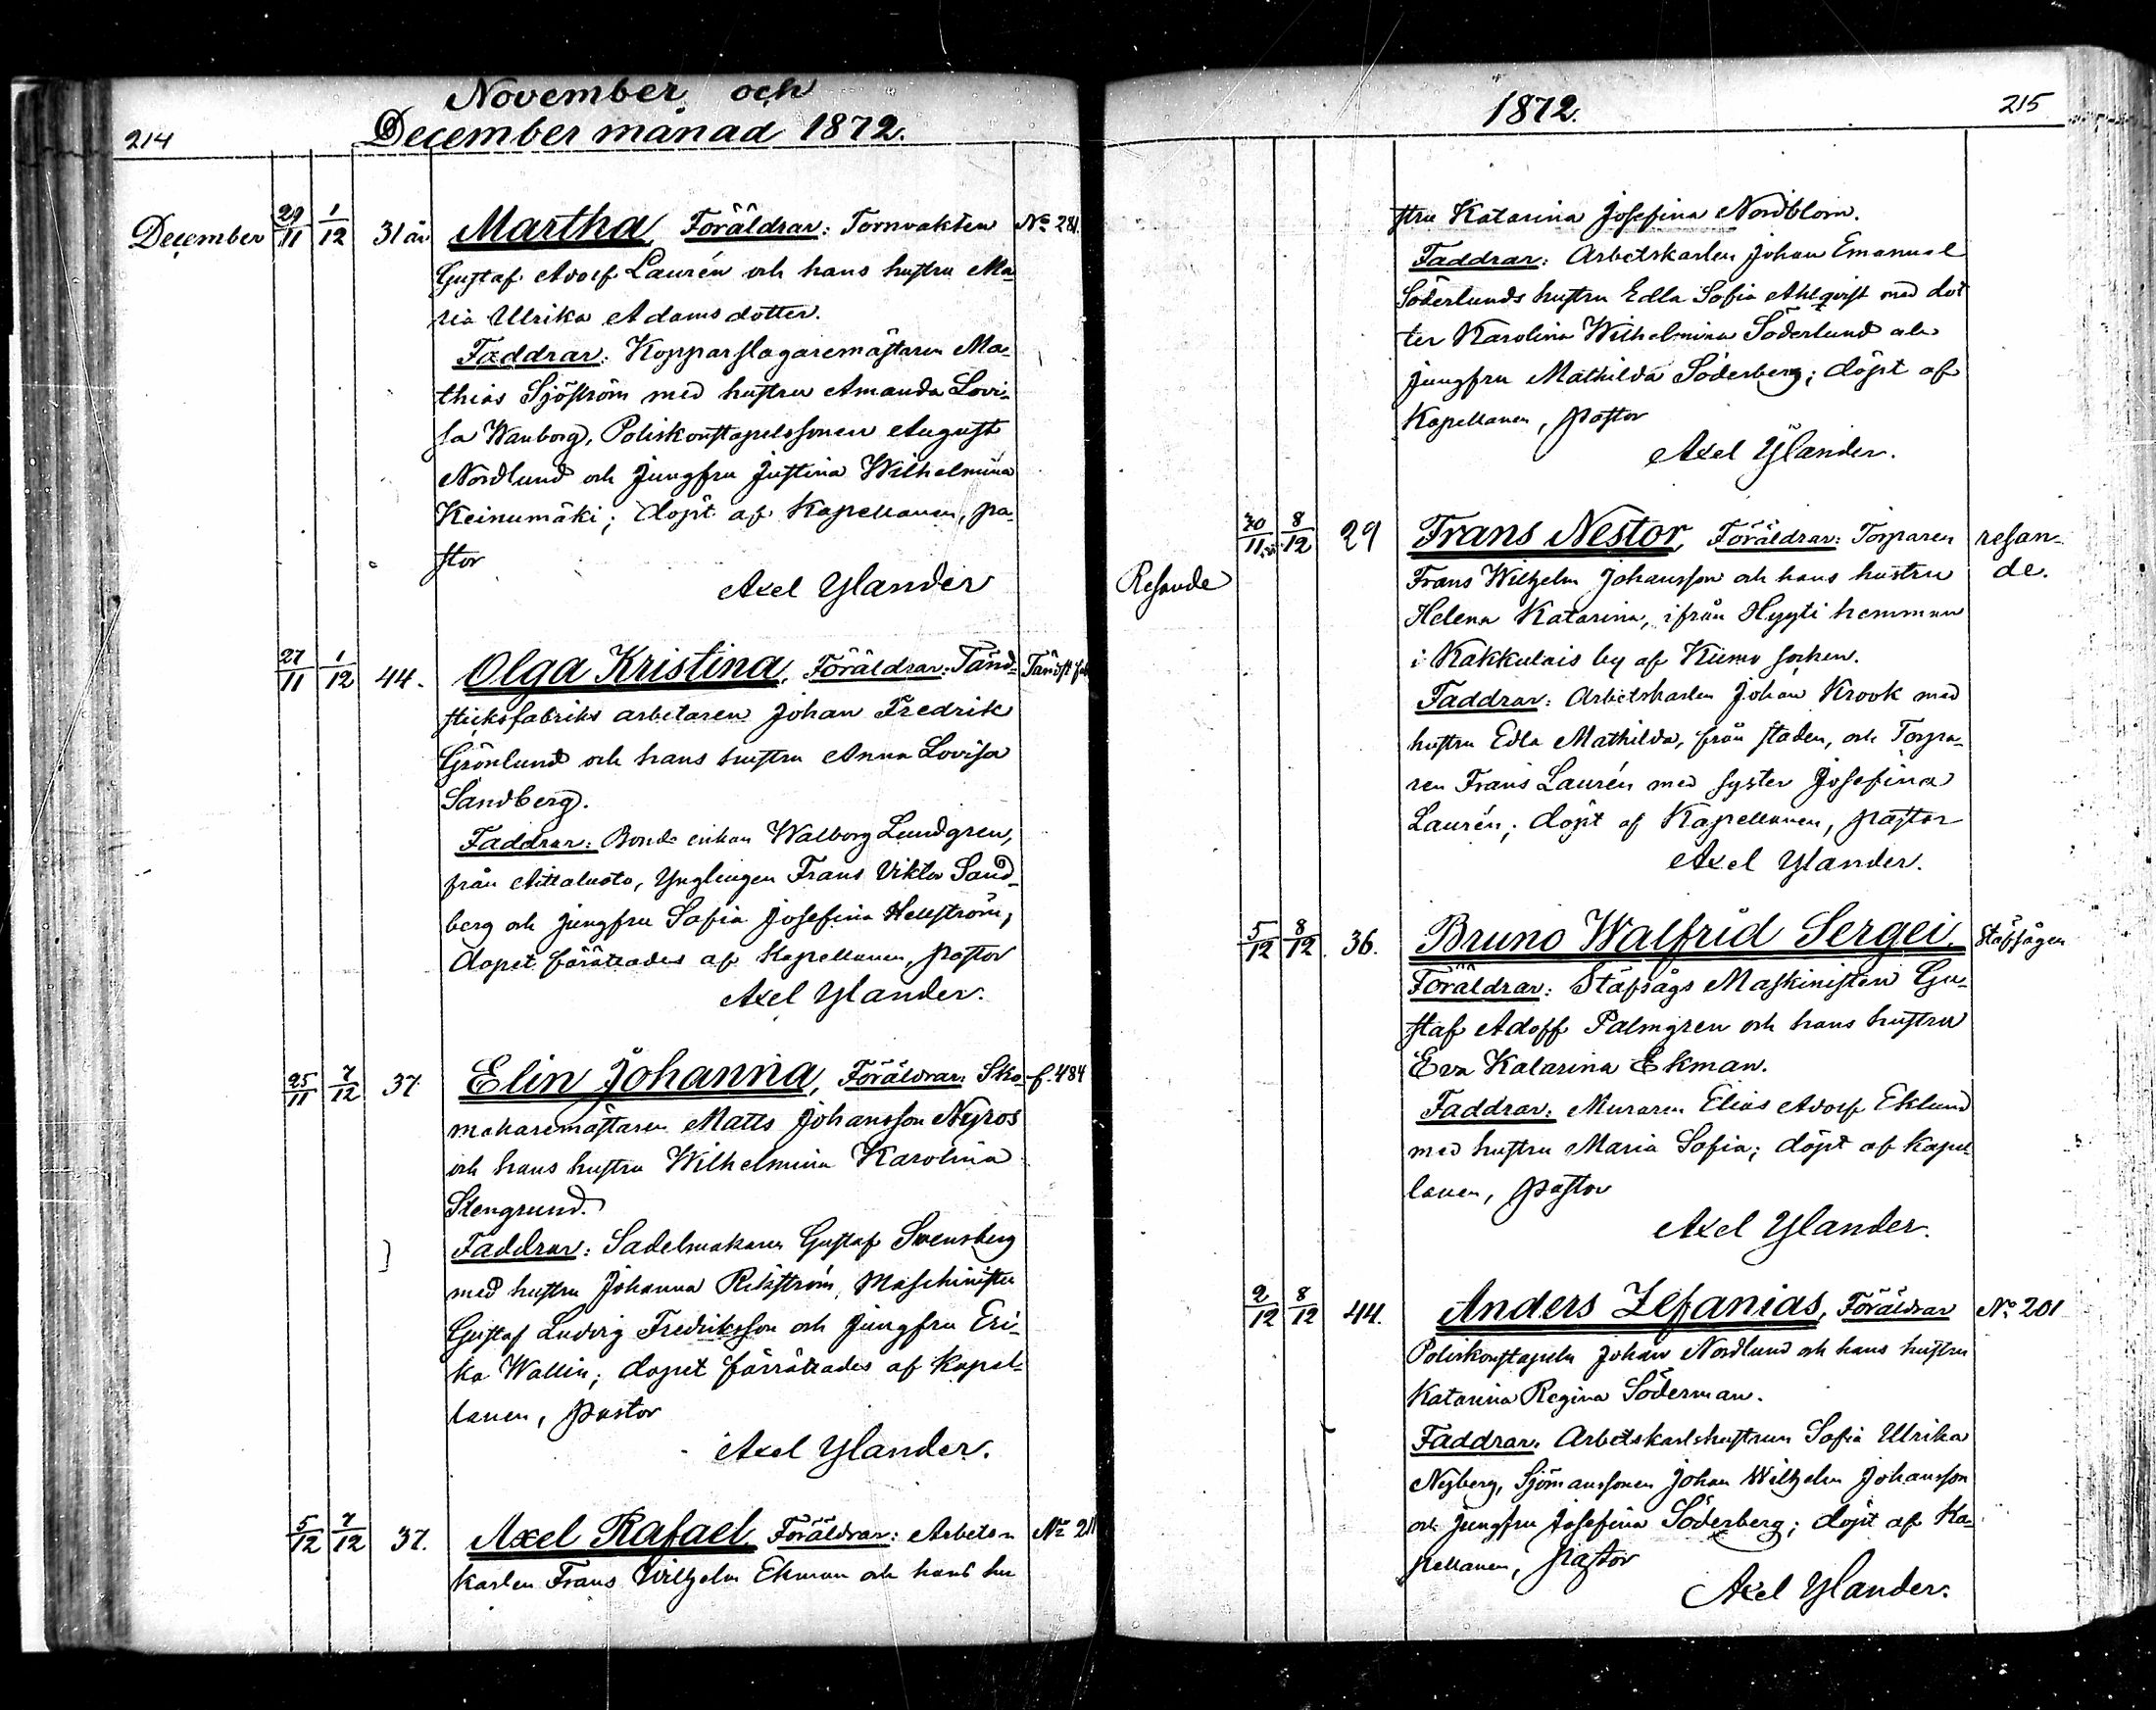 November och
214 December månad 1872.
December 29/11 1/12 31 år Martha, Föräldrar: Tornvakten No 281.
Gustaf Adolf Laurén och hans hustru Ma-
ria Ulrika Adamsdotter.
Faddrar: Kopparslagaremästaren Ma-
thias Sjöström med hustru Amanda Lovi-
sa Wanborg, Poliskonstapelssonen August
Nordlund och Jungfru Justina Wilhelmina
Keinumäki; döpt af Kapellanen, pa-
stor
Axel Ylander
27/11 1/12 44. Olga Kristina, Föräldrar: Tänd- Tändst fab
sticksfabriks arbetaren Johan Fredrik
Grönlund och hans hustru Anna Lovisa
Sandberg.
Faddrar: Bonde enkan Walborg Lundgren,
från Aittaluoto, Ynglingen Frans Viktor Sand-
berg och jungfru Sofia Josefina Hellström,
dopet förättades af Kapellanen, pastor
Axel Ylander.
25/11 7/12 37. Elin Johanna, Föräldrar: Sko- f. 484
makaremästaren Matts Johansson Nyros
och hans hustru Wilhelmina Karolina
Stengrund.
Faddrar: Sadelmakaren Gustaf Svensberg
med hustru Johanna Rikström, Maschinisten
Gustaf Ludvig Fredriksson och Jungfru Eri-
ka Wallin; dopet förrättades af Kapel-
lanen, pastor
Axel Ylander.
5/12 7/12 37. Axel Rafael, Föräldrar: Arbets- No 211
karlen Frans Wilhelm Ekman och hans hu
1872. 215
stru Katarina Josefina Nordblom.
Faddrar: Arbetskarlen Johan Emanuel
Söderlunds hustru Edla Sofia Ahlqvist med dot
ter Karolina Wilhelmina Söderlund och
jungfru Mathilda Söderberg; döpt af
Kapellanen, pastor
Axel Ylander.
30/11 8/12 29 Frans Nestor, Föräldrar: Torparen resan-
Resande Frans Wilhelm Johansson och hans hustru de.
Helena Katarina, ifrån Hyyti hemman
i Kakkulais by af Kiimo socken.
Faddrar: Arbetskarlen Johan Krook med
hustru Edla Mathilda, från staden, och Torpa-
ren Frans Laurén med syster Josefina
Laurén; döpt af Kapellanen, pastor
Axel Ylander.
5/12 8/12 36. Bruno Walfrid Sergei. Stäfsågen
Föräldrar: Stäfsågs Maskinisten Gu-
staf Adolf Palmgren och hans hustru
Eva Katarina Ekman.
Faddrar: Muraren Elias Adolf Eklund
med hustru Maria Sofia; döpt af Kapel
lanen, pastor
Axel Ylander.
2/12 8/12 44. Anders Zefanias, Föräldrar No 201
Poliskonstapeln Johan Nordlund och hans hustru
Katarina Regina Söderman.
Faddrar. Arbetskarlshustrun Sofia Ulrika
Nyberg, Sjömanssonen Johan Wilhelm Johansson
och jungfru Josefina Söderberg; döpt af Ka-
pellanen, pastor
Axel Ylander.